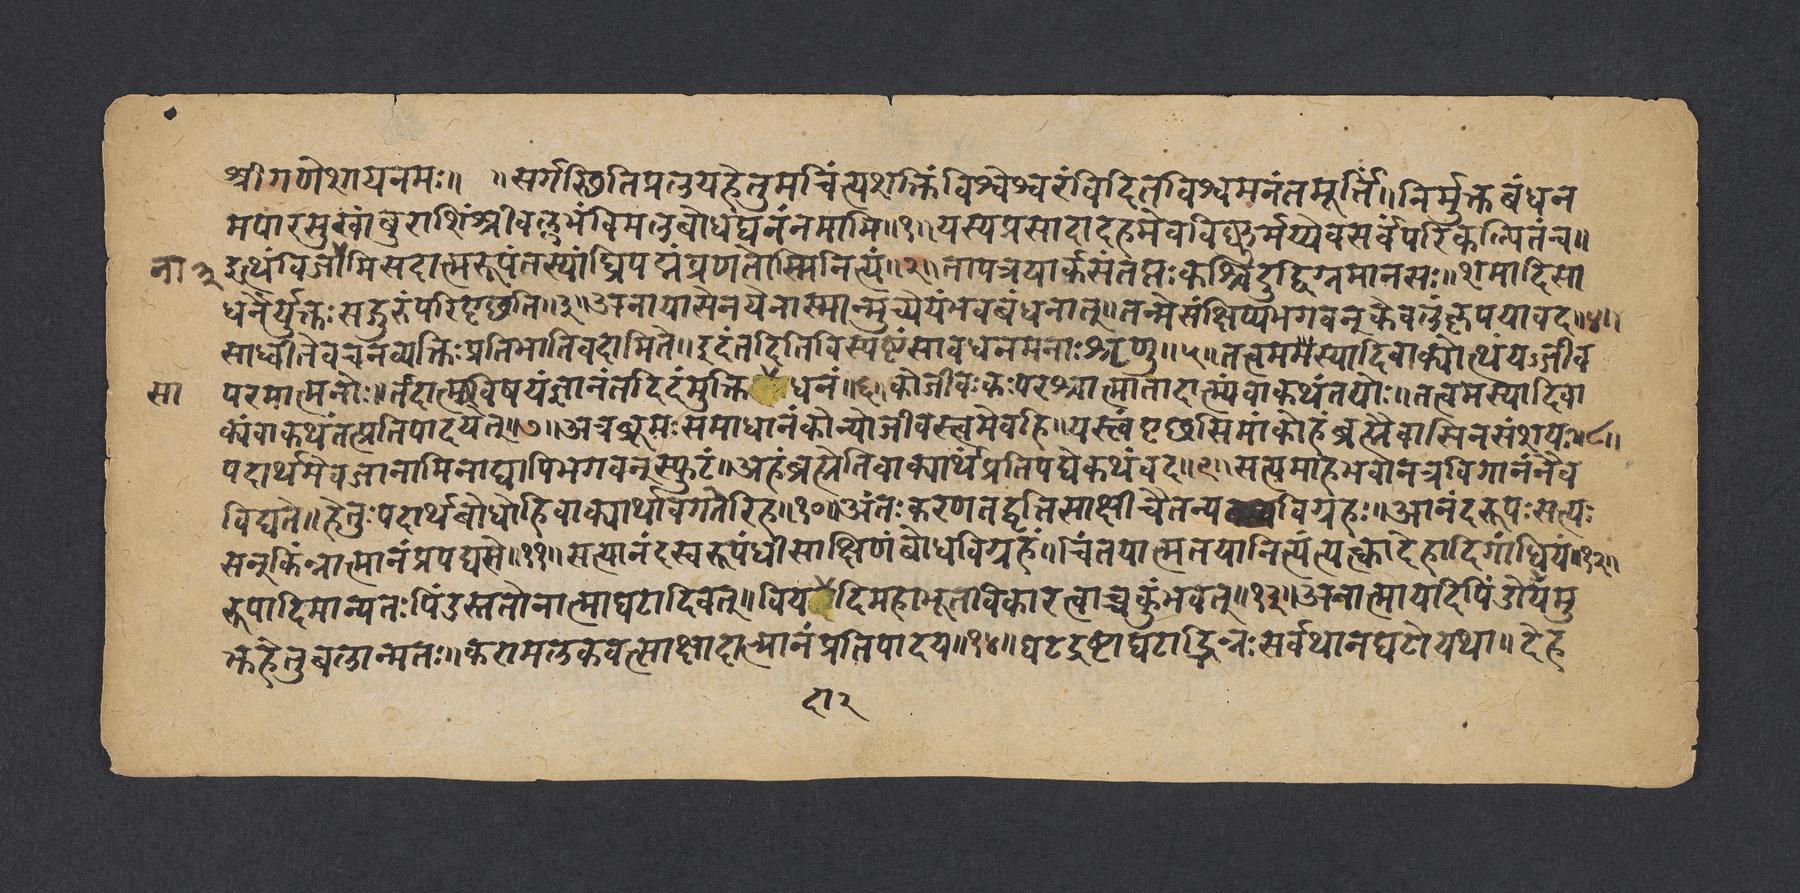 श्रीगणेशायनमः॥ ॥सर्गस्थितिप्रलयहेतुमचिंत्यशक्तिं विश्वेश्वरंविदितविश्वमनंतमूर्त्तिं॥निर्मुक्तबंधन
मपारसुखांबुराशिंश्रीवल्लभंविमलबोधघनंनमामि॥१॥यस्यप्रसादादहमेवविष्णुर्मय्येवसर्वंपरिकल्पितंच॥
ना २ इत्थंविजामिसदात्मरूपंतस्यांघ्रिपद्मंप्रणतोस्मिनित्यं॥२॥तापत्रयार्कसंतप्तःकश्चिदुद्विग्नमानसः॥शमादिसा
धनैर्युक्तःसद्गुरुंपरिपृछति॥३॥अनायासेनयेनास्मान्मुच्येयंभवबंधनात्॥तन्मेसंक्षिप्यभगवन्कैवलंकृपयावद॥४॥
साध्वीतेवचनव्यक्तिःप्रतिभातिवदामिते॥इदंतदितिविस्पष्टंसावधनमनाःशृणु॥५॥तत्त्वमस्यादिवाक्योत्थंयज्जीव
सा परमात्मनोः॥तादात्म्यविषयंज्ञानंतदिदंमुक्तिधनं॥६॥कोजीवःकःपरश्चात्मातादात्म्यंवाकथंतयोः॥तत्त्वमस्यादिवा
क्यंवाकथंतत्प्रतिपादयेत्॥७॥अत्रब्रूमःसमाधानंकोन्योजीवस्त्वमेवहि॥यस्त्वंपृछसिमांकोहंब्रह्मैवासिनसंशयः॥८॥
पदार्थमेवजानामिनाद्यापिभगवन्स्फुटं॥अहंब्रह्मेतिवाक्यार्थंप्रतिपद्येकथंवद॥९॥सत्यमाहभवानत्रविगानंनैव
विद्यते॥हेतुःपदार्थबोधोहिवाक्यार्थावगतेरिह॥१०॥अंतःकरणतद्वृत्तिसाक्षीचैतन्यविग्रहः॥आनंदरूपःसत्यः
सन्किंन्नात्मानंप्रपद्यसे॥११॥सत्यानंदस्वरूपंधीसाक्षिणंबोधविग्रहं॥चिंतयात्मतयानित्यंत्यक्त्वादेहादिगांधियं॥१२॥
रूपादिमान्यतःपिंडस्ततोनात्माघटादिवत्॥वियदिमहाभूतविकारत्वाच्चकुंभवत्॥१३॥अनात्मायदिपिंडोयमु
क्तहेतुबलान्मतः॥करामलकवत्साक्षादात्मानंप्रतिपादय॥१४॥घटद्रष्टाघटाद्भिन्नःसर्वथानघटोयथा॥देह
दा २